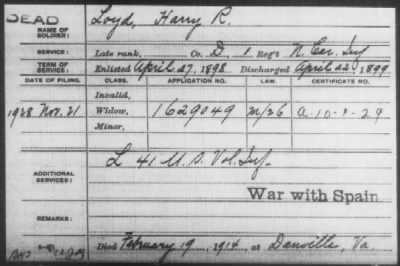 DEAD
NAME OF SOLDIER: Loyd, Harry R.
SERVICE: Late rank, Co. D, 1 Reg't N. Car. Inf
TERM OF SERVICE: Enlisted April 27, 1898 Discharged April 22, 1899
DATE OF FILING. CLASS. APPLICATION NO. LAW. CERTIFICATE NO.
Invalid,
1928 Nov. 21 Widow, 1629049 m/26 a-10-9-29
Minor,
ADDITIONAL SERVICES: L 41 U.S. Vol. Inf.
War with Spain
REMARKS:
Died February 19, 1914, at Danville, Va